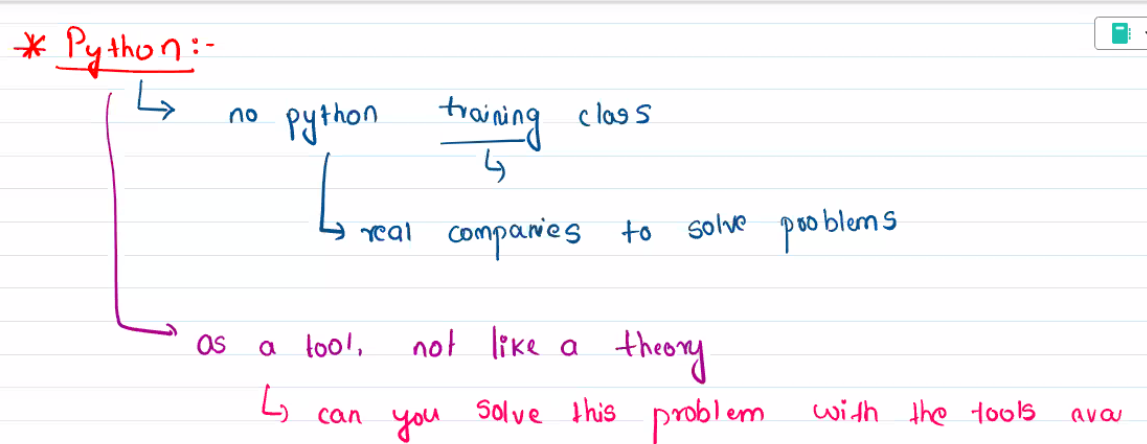 * Python:-
↳ no python training class
↳
↳ real companies to solve problems
→ as a tool, not like a theory
↳ can you solve this problem with the tools ava